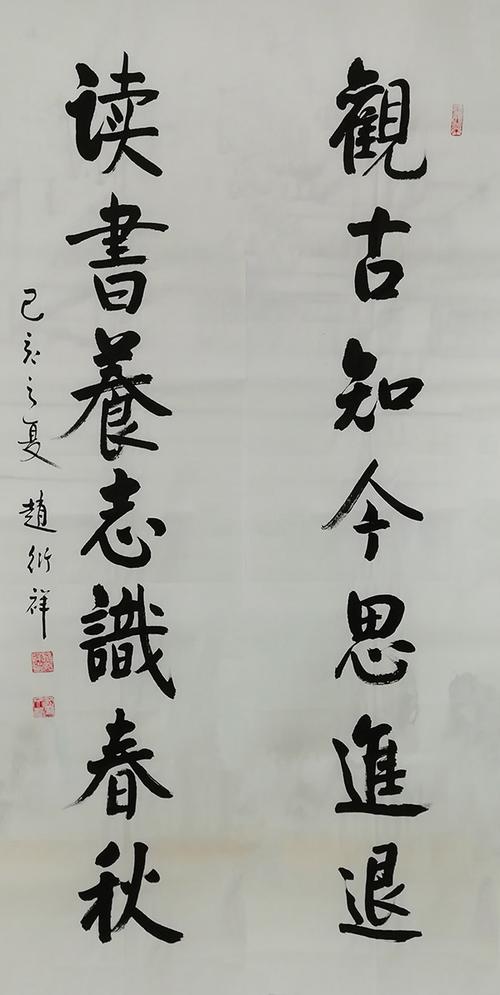 觀古知今思進退
读書養志識春秋
己亥之夏 趙衍祥